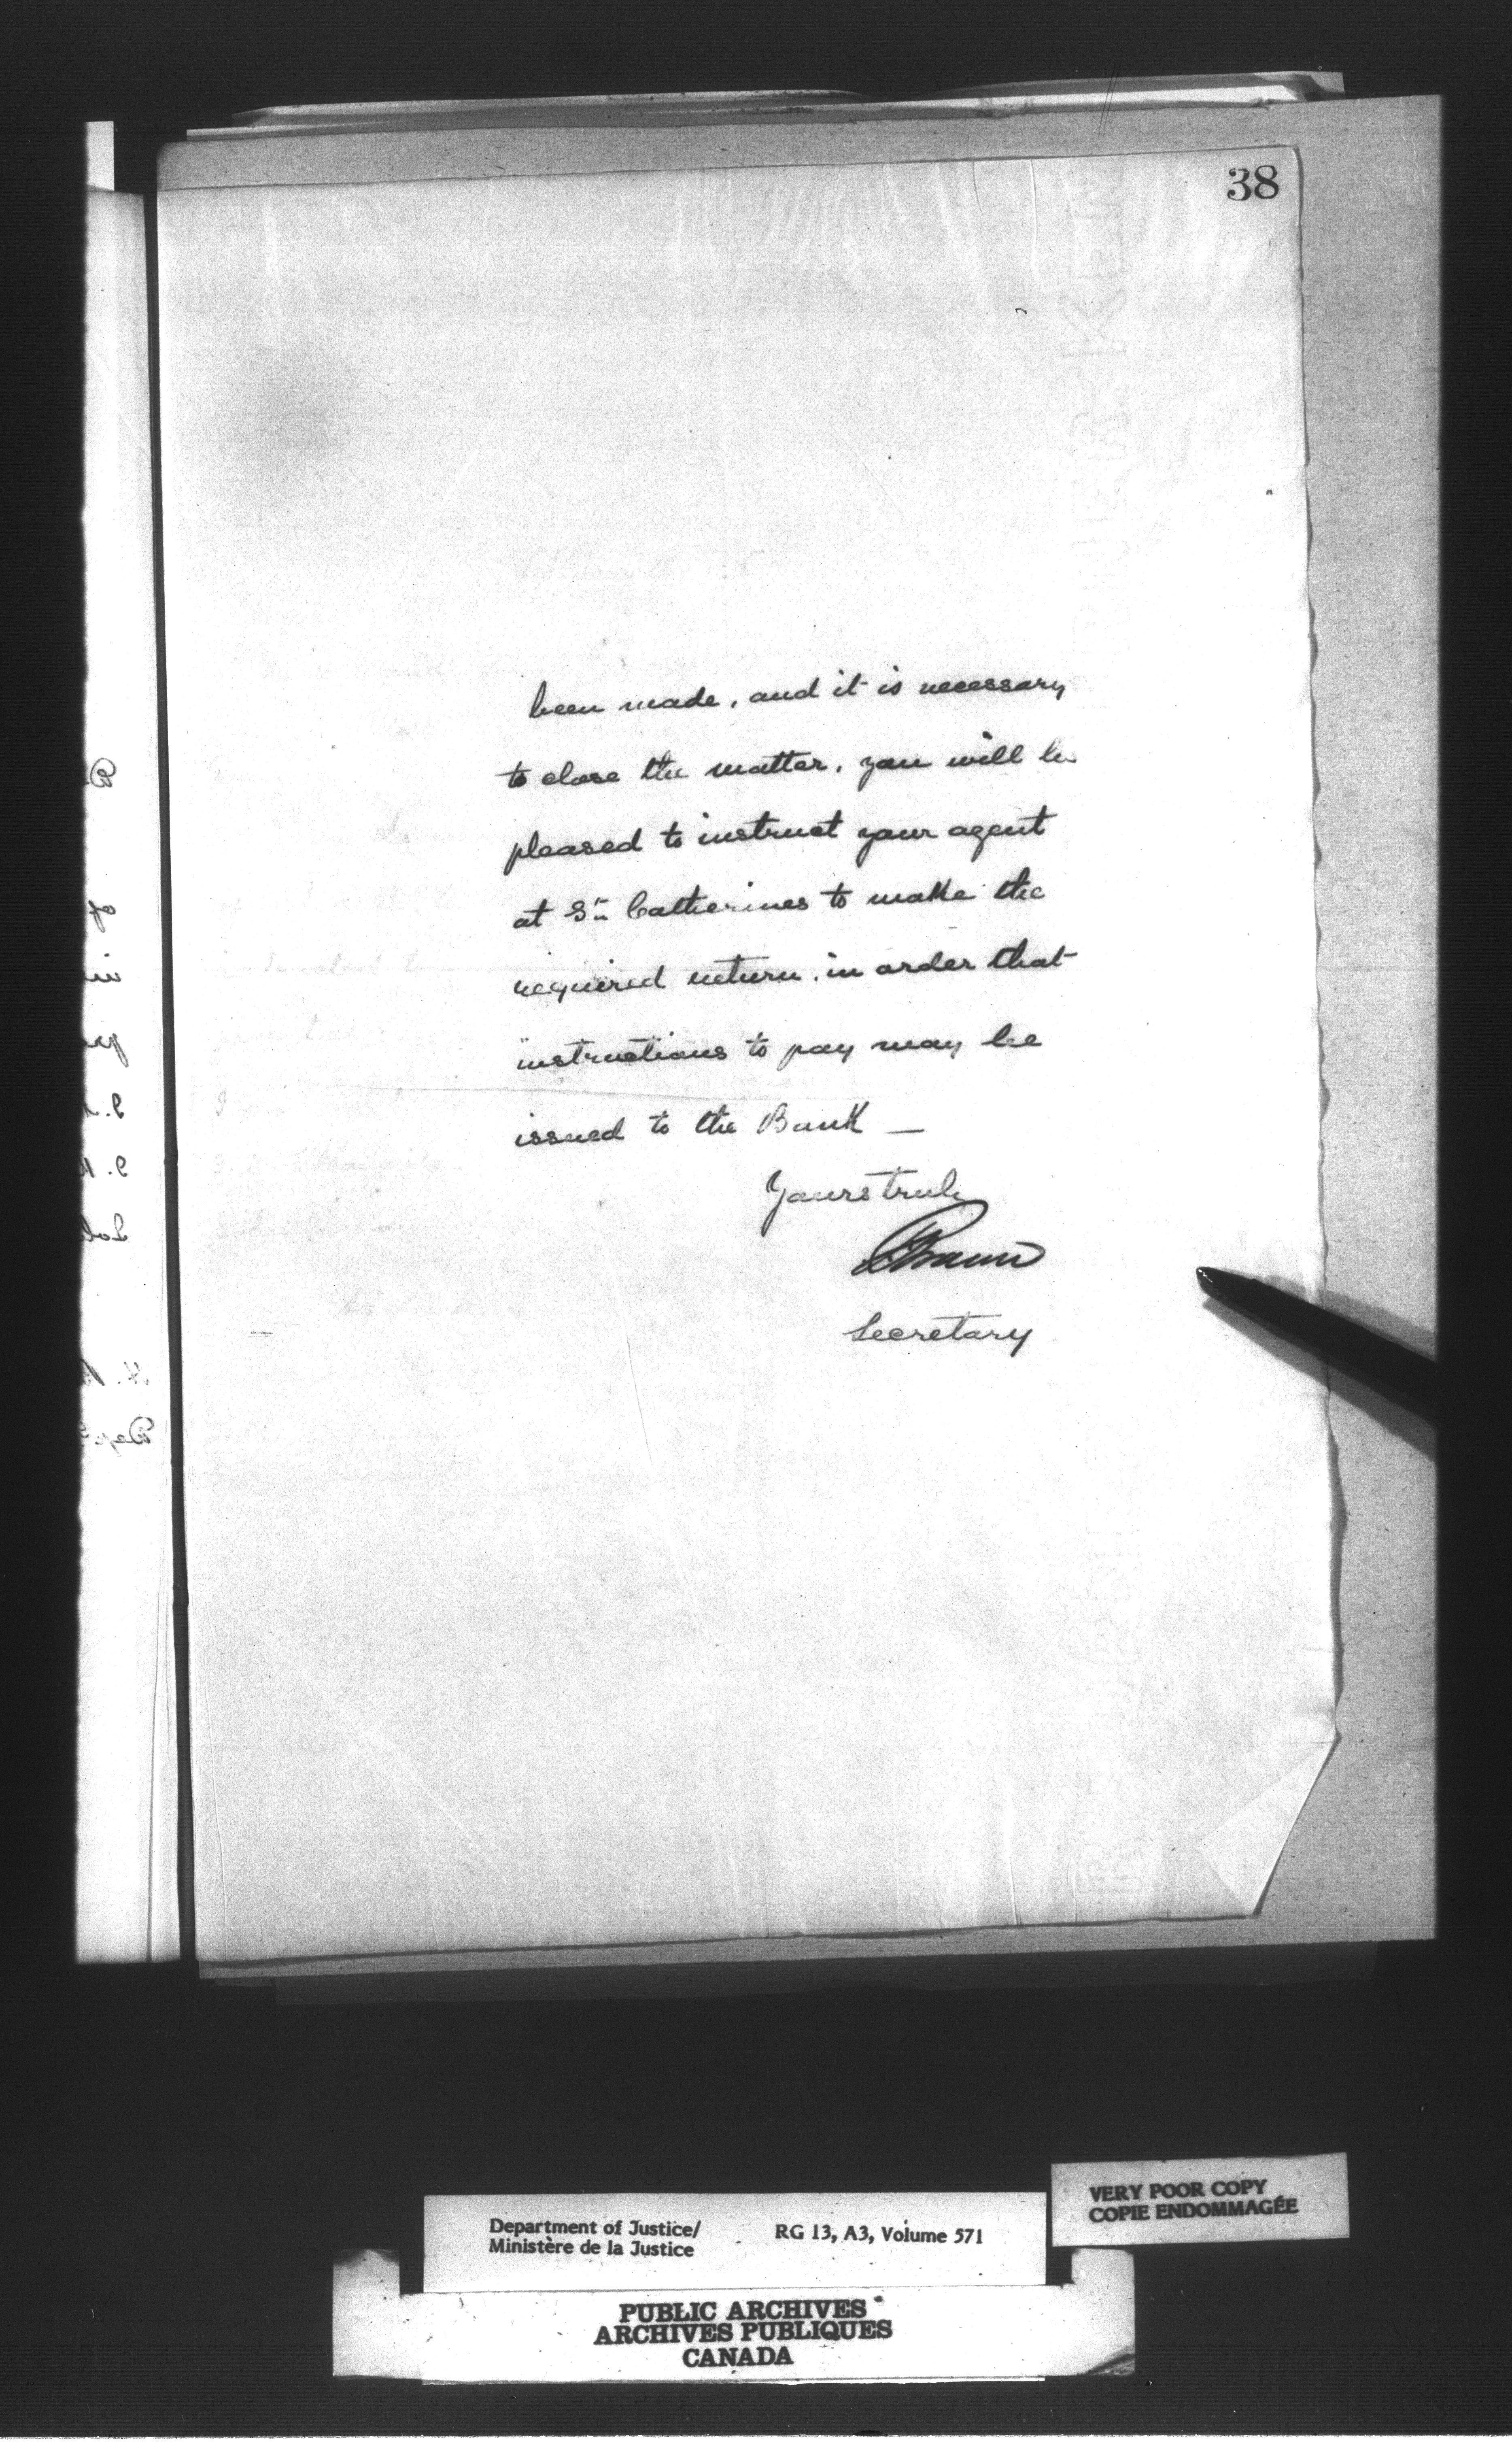 38
been made, and it is necessary
to close the matter, you will be
pleased to instruct your agent
at St. Catherines to make the
required return, in order that
instructions to pay may be
issued to the Bank —
Yours truly
Braun
Secretary
Department of Justice/
Ministère de la Justice
RG 13, A3, Volume 571
VERY POOR COPY
COPIE ENDOMMAGÉE
PUBLIC ARCHIVES
ARCHIVES PUBLIQUES
CANADA